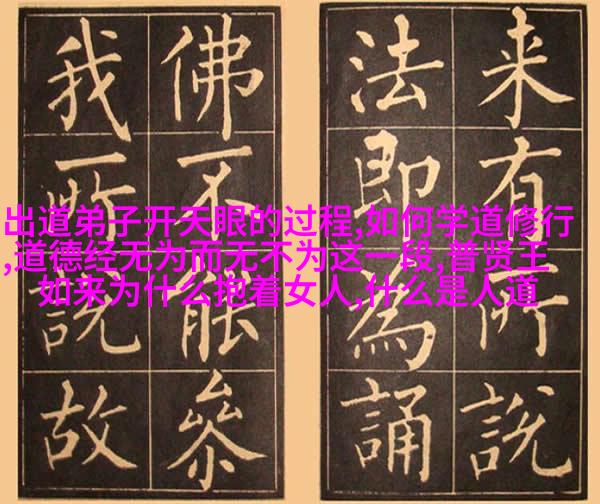 出道弟子开天眼的过程,如何学道修行
,道德经无为而无不为这一段,普贤王
如来为什么抱着女人,什么是人道
来有所說
法即為誦
佛不能參
我所說故